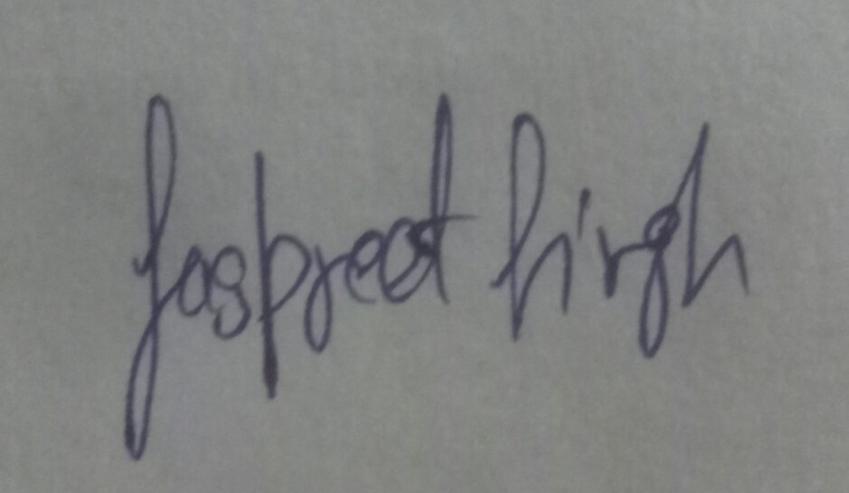 Jaspreet Singh